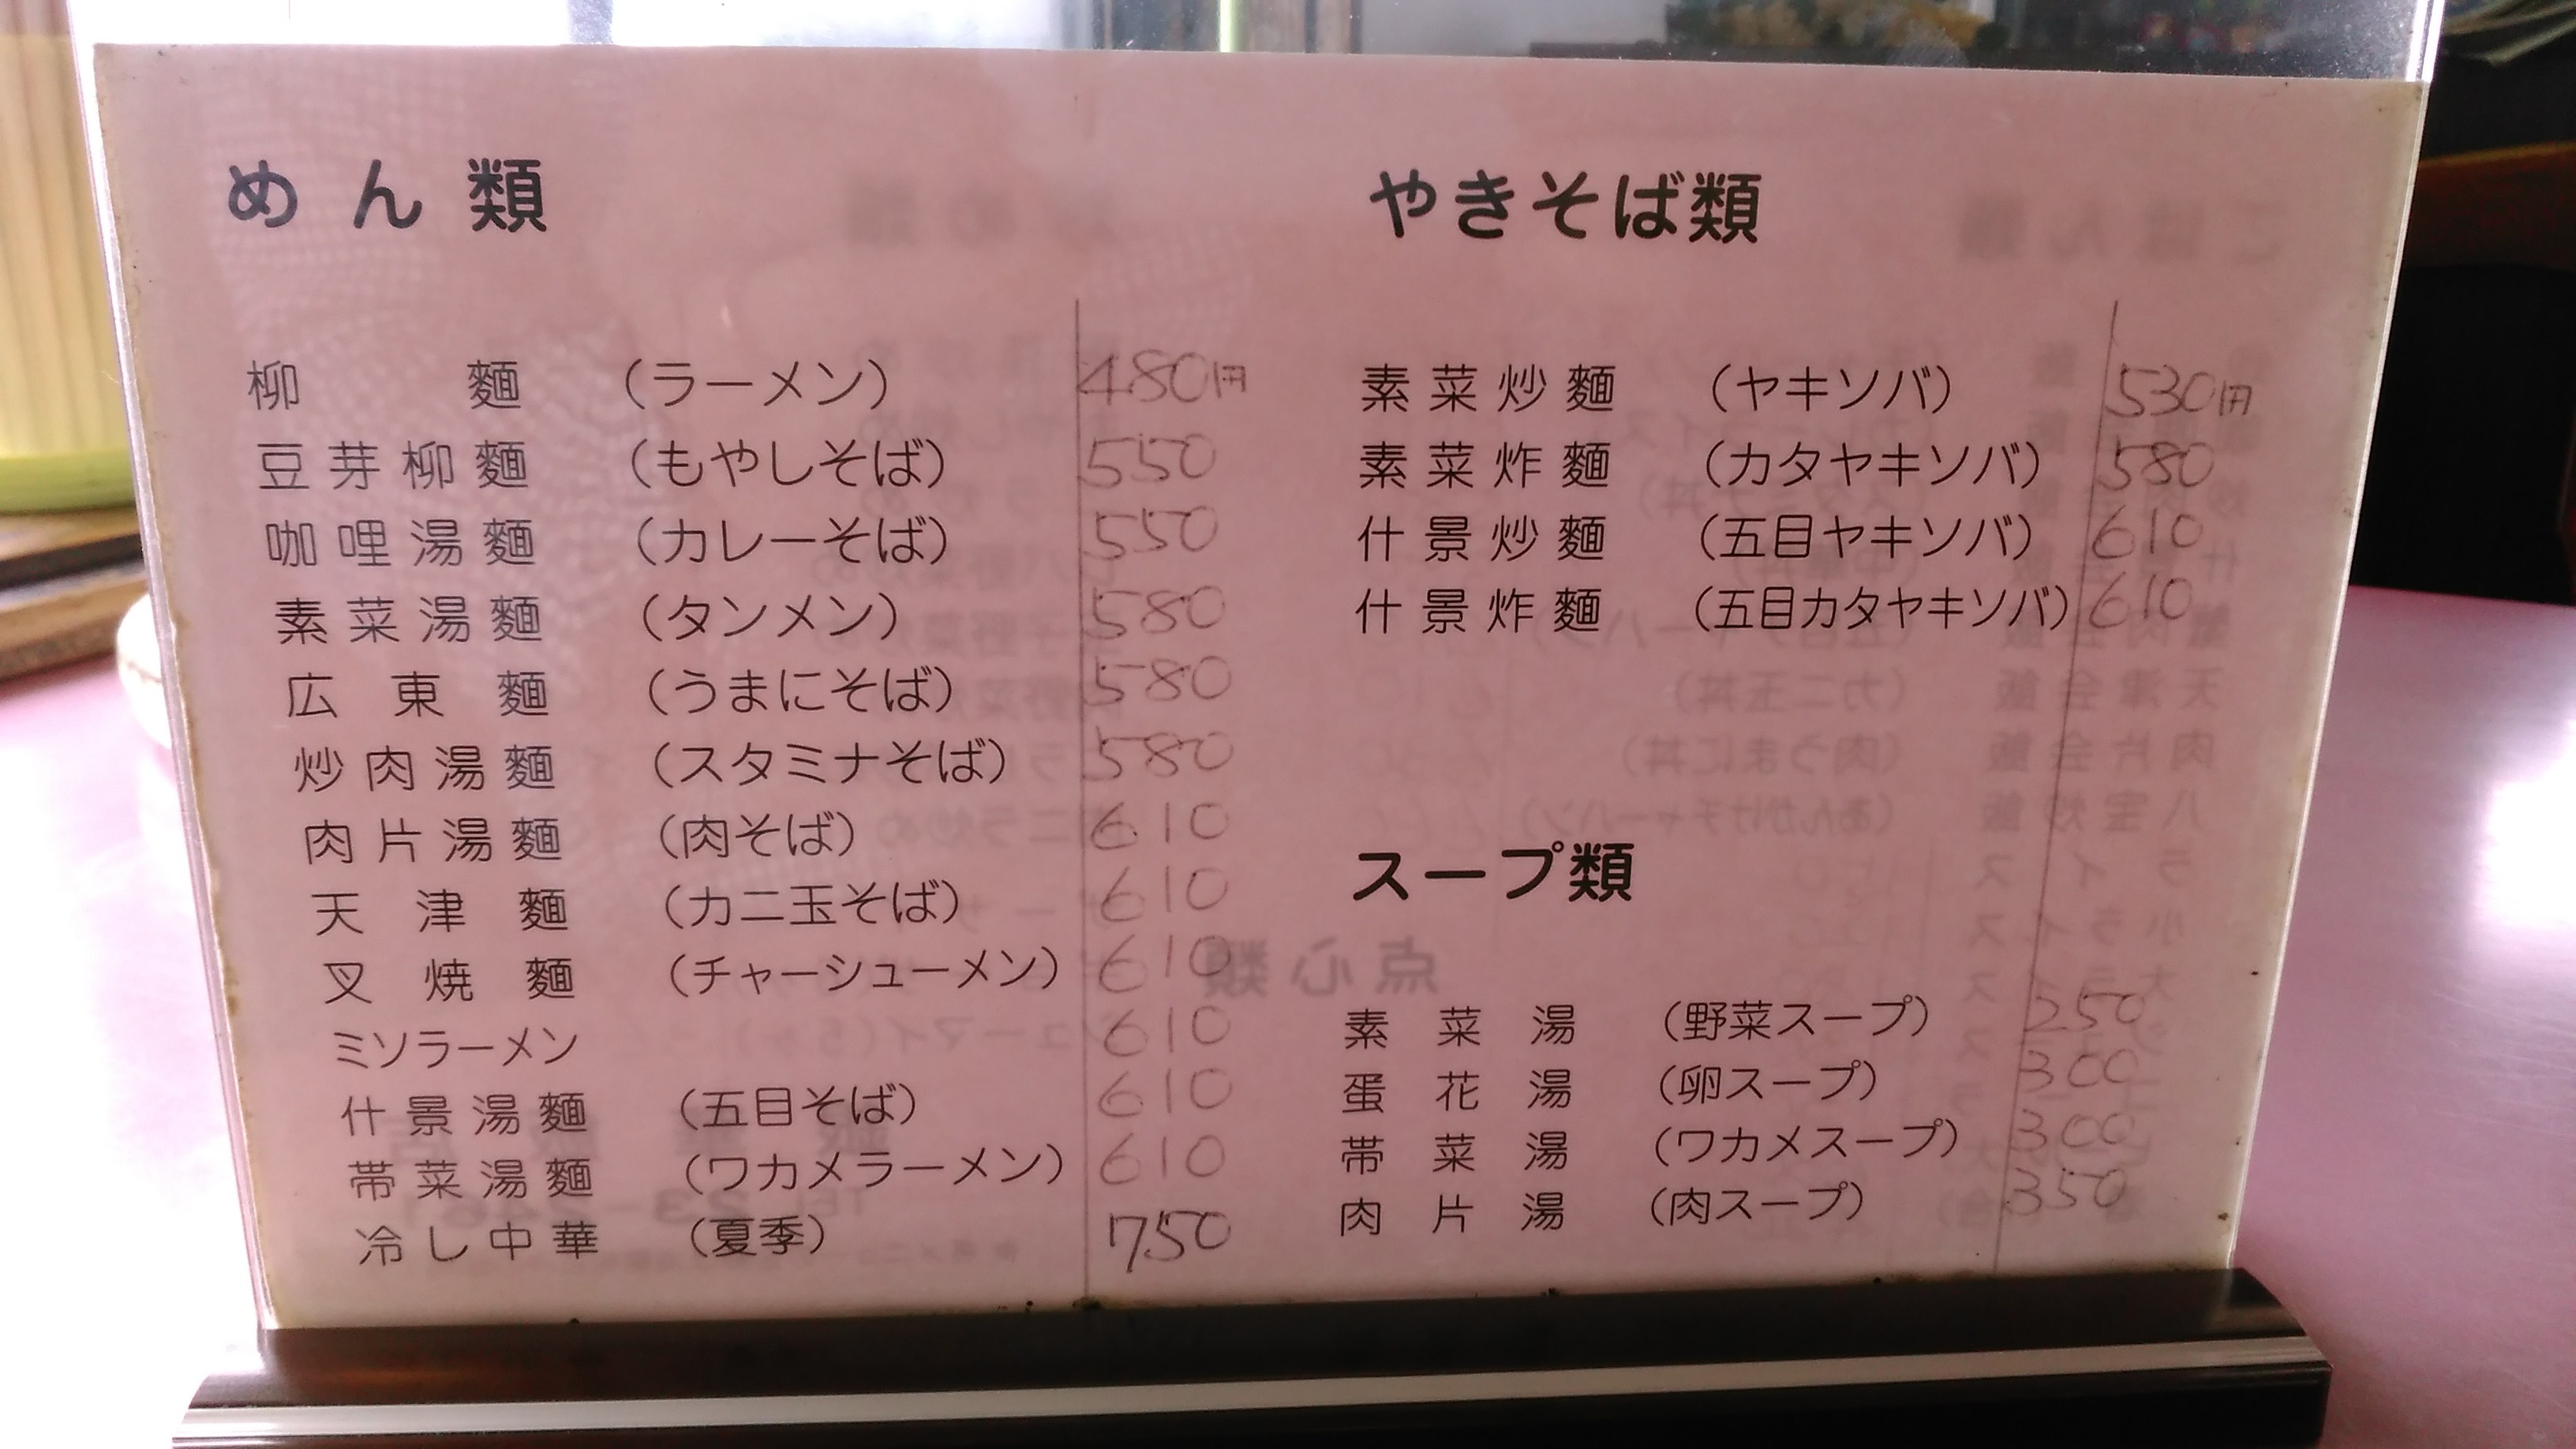 めん類
柳麺 （ラーメン） 480円
豆芽柳麺 （もやしそば） 550
咖哩湯麺 （カレーそば） 550
素菜湯麺 （タンメン） 580
広東麺 （うまにそば） 580
炒肉湯麺 （スタミナそば） 580
肉片湯麺 （肉そば） 610
天津麺 （カニ玉そば） 610
叉焼麺 （チャーシューメン） 610
ミソラーメン 610
什景湯麺 （五目そば） 610
帯菜湯麺 （ワカメラーメン） 610
冷し中華 （夏季） 750
やきそば類
素菜炒麺 （ヤキソバ） 530円
素菜炸麺 （カタヤキソバ） 580
什景炒麺 （五目ヤキソバ） 610
什景炸麺 （五目カタヤキソバ） 610
スープ類
素菜湯 （野菜スープ） 250
蛋花湯 （卵スープ） 300
帯菜湯 （ワカメスープ） 300
肉片湯 （肉スープ） 350